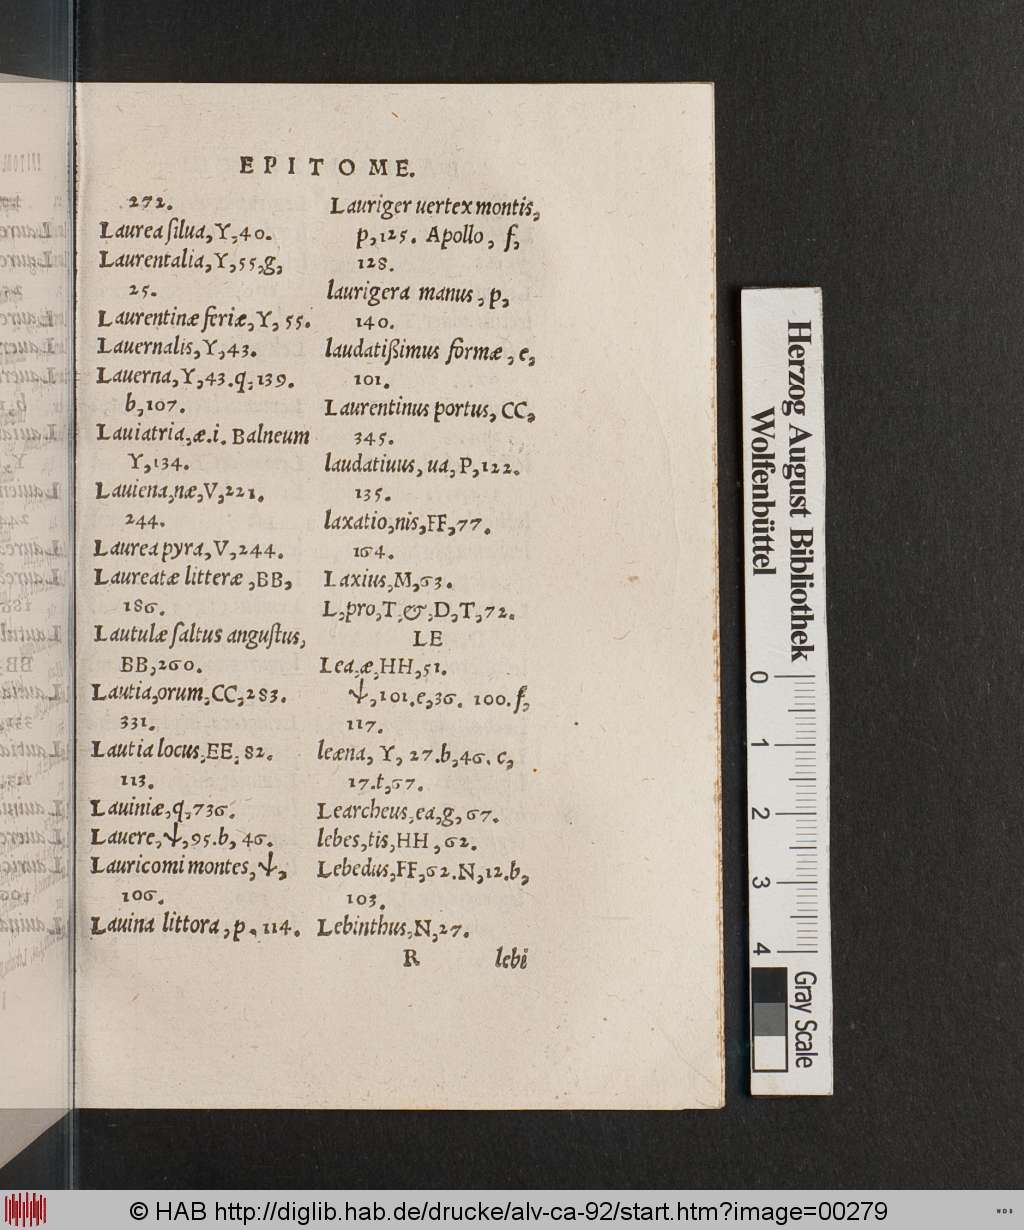 EPITOME.
272.
Laurea ſilua, Y, 40.
Laurentalia, Y, 55, g,
25.
Laurentinæ feriæ, Y, 55.
Lauernalis, Y, 43.
Lauerna, Y, 43. q, 139.
b, 107.
Lauiatria, æ. i. Balneum
Y, 134.
Lauiena, næ, V, 221.
244.
Laurea pyra, V, 244.
Laureatæ litteræ, BB,
186.
Lautulæ ſaltus anguſtus,
BB, 260.
Lautia, orum, CC, 283.
331.
Lautia locus, EE, 82.
113.
Lauiniæ, q, 736.
Lauere, ψ, 95. b, 46.
Lauricomi montes, ψ,
106.
Lauina littora, p. 114.
Lauriger uertex montis,
p, 125. Apollo, f,
128.
laurigera manus, p,
140.
laudatißimus formæ, e,
101.
Laurentinus portus, CC,
345.
laudatiuus, ua, P, 122.
135.
laxatio, nis, FF, 77.
164.
Laxius, M, 63.
L, pro, T, &, D, T, 72.
LE
Lea, æ, HH, 51.
ψ, 101. e, 36. 100. f,
117.
leæna, Y, 27. b, 46. c,
17. t, 67.
Learcheus, ea, g, 67.
lebes, tis, HH, 62.
Lebedus, FF, 62. N, 12. b,
103.
Lebinthus, N, 27.
R lebi
Herzog August Bibliothek
Wolfenbüttel
0 1 2 3 4
Gray Scale
© HAB http://diglib.hab.de/drucke/alv-ca-92/start.htm?image=00279
WDB